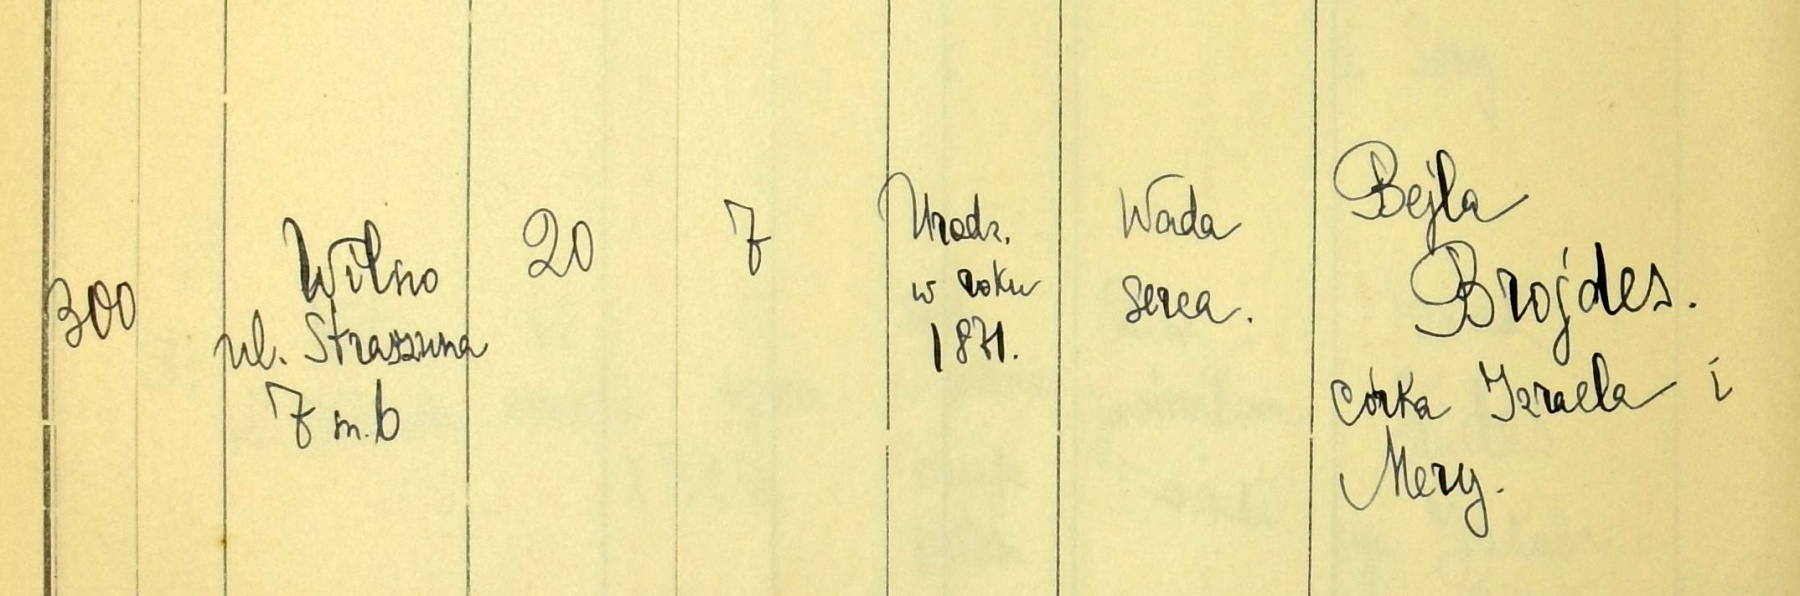 300
Wilno
ul. Straszuna
7 m. 6
20
7
Urodz.
w roku
1871.
Wada
serca.
Bejla
Brojdes.
córka Izraela i
Mery.